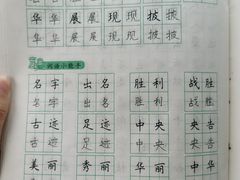 华 华 展 展 现 现 披 披
华 华 展 展 现 现 披 披
词语小能手
名字 出名 胜利 战胜
名字 出名 胜利 战告
古迹 足迹 中央 央告
古迹 足迹 中央 央告
美丽 秀丽 中华 华丽